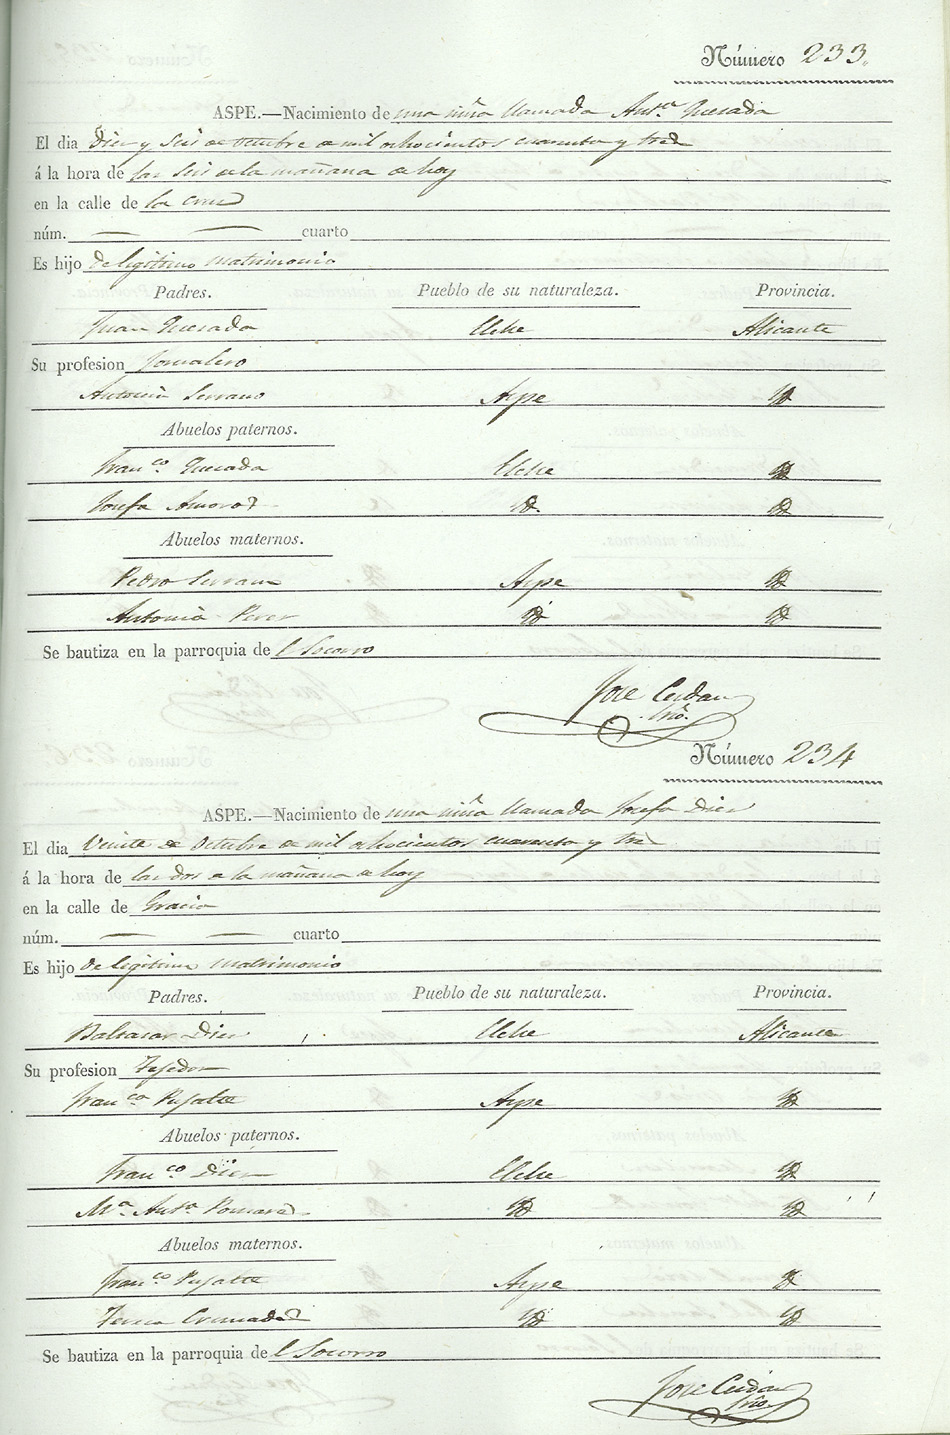 Número 233.
ASPE.—Nacimiento de una niña llamada Ant.ª Quesada
El dia Diez y seis de octubre de mil ochocientos cuarenta y tres
á la hora de las seis de la mañana de hoy
en la calle de la Cruz
núm. — — cuarto
Es hijo de legitimo matrimonio
Padres. Pueblo de su naturaleza. Provincia.
Juan Quesada Elche Alicante
Su profesion Jornalero
Antonia Serrano Aspe Yd
Abuelos paternos.
Fran.co Quesada Elche Yd
Josefa Amoros Yd. Yd
Abuelos maternos.
Pedro Serrano Aspe Yd
Antonia Perez Yd Yd
Se bautiza en la parroquia de l Socorro
Jose Cerdan
Srio.
Número 234
ASPE.—Nacimiento de una niña llamada Josefa Diez
El dia Veinte de Octubre de mil ochocientos cuarenta y tres
á la hora de las dos de la mañana de hoy
en la calle de Gracia
núm. — — cuarto
Es hijo de legitimo matrimonio
Padres. Pueblo de su naturaleza. Provincia.
Baltasar Diez Elche Alicante
Su profesion Tejedor
Fran.ca Pujalte Aspe Yd
Abuelos paternos.
Fran.co Diez Elche Yd
M.ª Ant.ª Yd Yd
Abuelos maternos.
Fran.co Pujalte Aspe Yd
Teresa Cremades Yd Yd
Se bautiza en la parroquia de l Socorro
Jose Cerdan
Srio.